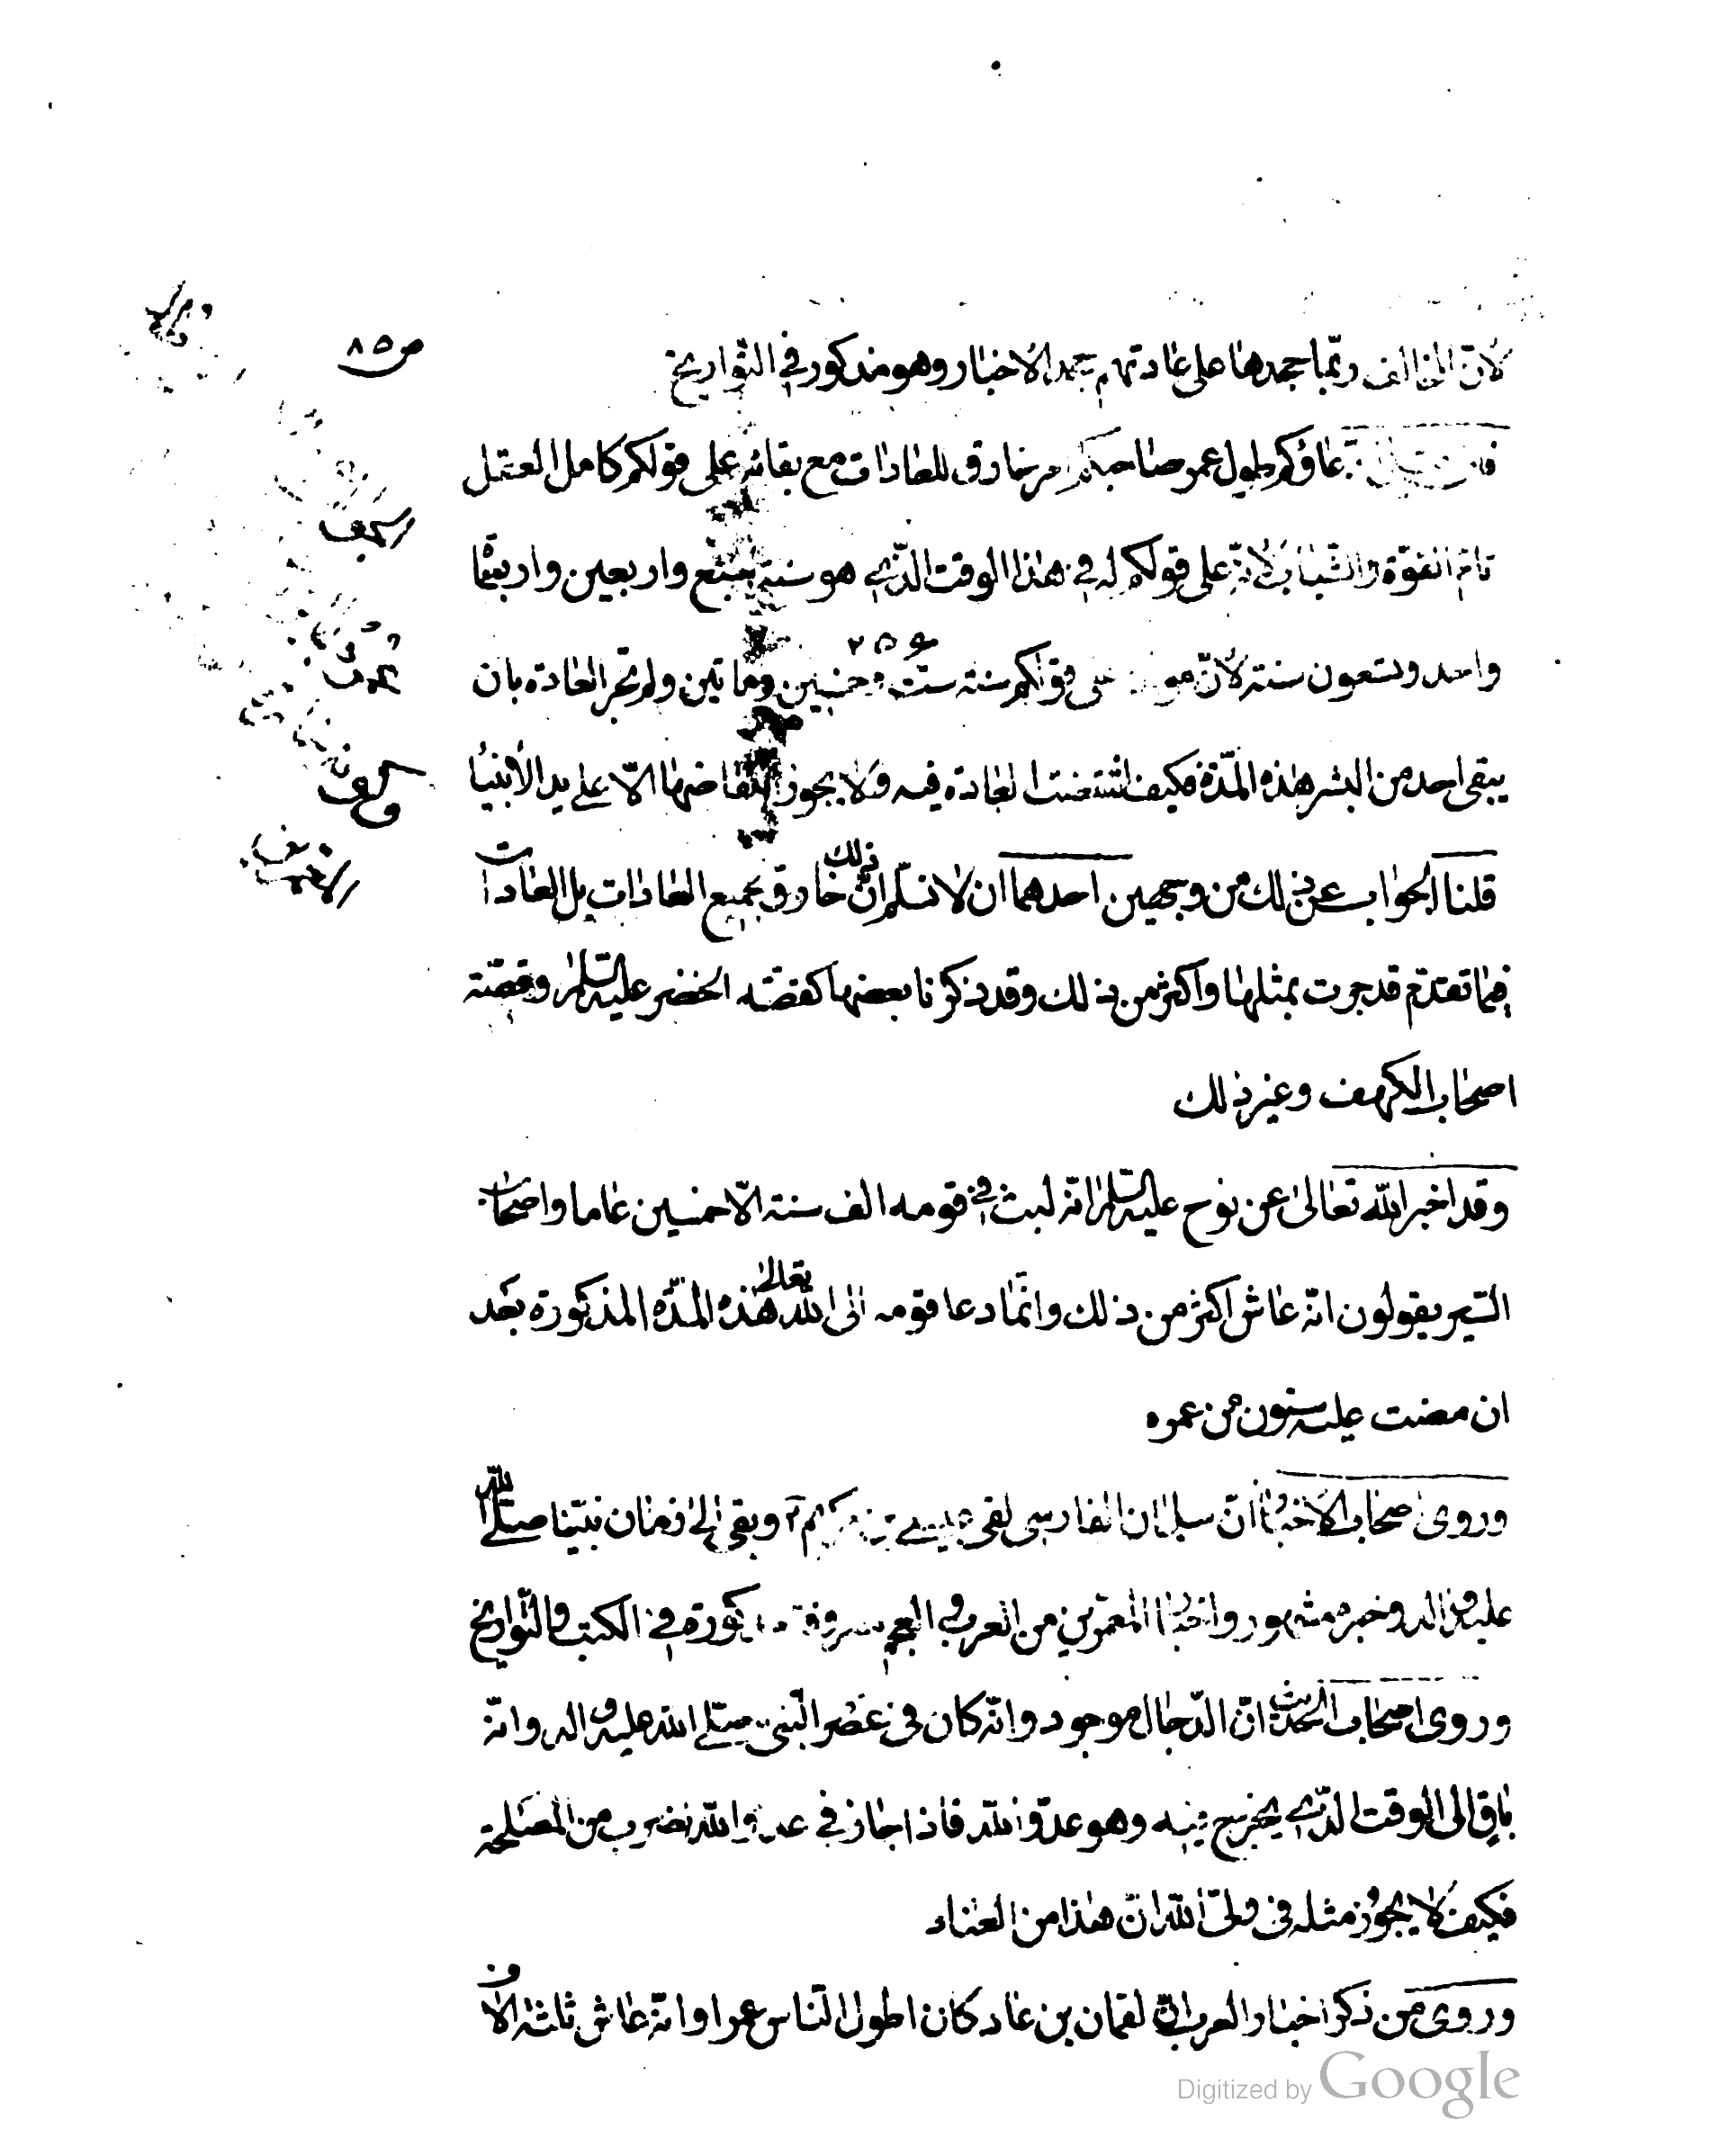 ص ٨٥
لأنّ المخالف ربّما جحدها على عادتهم جحد الاخبار وهو مذكور في التّواريخ
ادّعاؤكم طول عمر صاحبكم امر خارق للعادات مع بقائه على قولكم كامل العقل
تامّ القوّة والشّباب لأنّه على قولكم له في هذا الوقت الّذي هو سنة سبع واربعين واربعمأ
٢٥٦
واحد وتسعون سنة لأنّ على قولكم سنة ستّ وخمسين ومأتين ولم تجر العادة بان
يبقى احد من البشر هذه المدّة فكيف انتقضت العادة فيه ولا يجوز انتقاضها الّا على يد الأنبيا
قلنا الجواب عن ذلك من وجهين احدهما ان لا نسلّم انّ ذلك خارق لجميع العادات بل العادات
فيما تقدّم قد جرت بمثلها واكثر من ذلك وقد ذكرنا بعضها كقصّه الخضر عليه السلام وقصّة
اصحاب الكهف وغير ذلك
وقد اخبر الله تعالى عن نوح عليه السلام انّه لبث في قومه الف سنة الّا خمسين عاما واصحاب
السّير يقولون انّه عاش اكثر من ذلك وانّما دعا قومه الى الله تعالى هذه المدّه المذكورة بعد
ان مضت عليه ستون من عمره
وروى اصحاب الأخبا انّ سلمان الفارسى لقى عيسى بن مريم ء وبقى الى زمان نبيّنا صلى الله
عليه واله وخبره مشهور واخبا المعمّرين من العرب والعجم معروفة مذكورة في الكتب والتّواريخ
وروى اصحاب الحديث انّ الدّجال موجود وانّه كان في عصر النّبى صلى الله عليه واله وانّه
باق الى الوقت الّذي يخرج فيه وهو عدوّ الله فاذا جاز في عدوالله لضرب من المصلحة
فكيف لا يجوز مثله في ولىّ الله انّ هذا من العناد
وروى من ذكر اخبار العرب انّ لقمان بن عاد كان اطول النّاس عمرا وانّه عاش ثلثة الاف
Digitized by Google